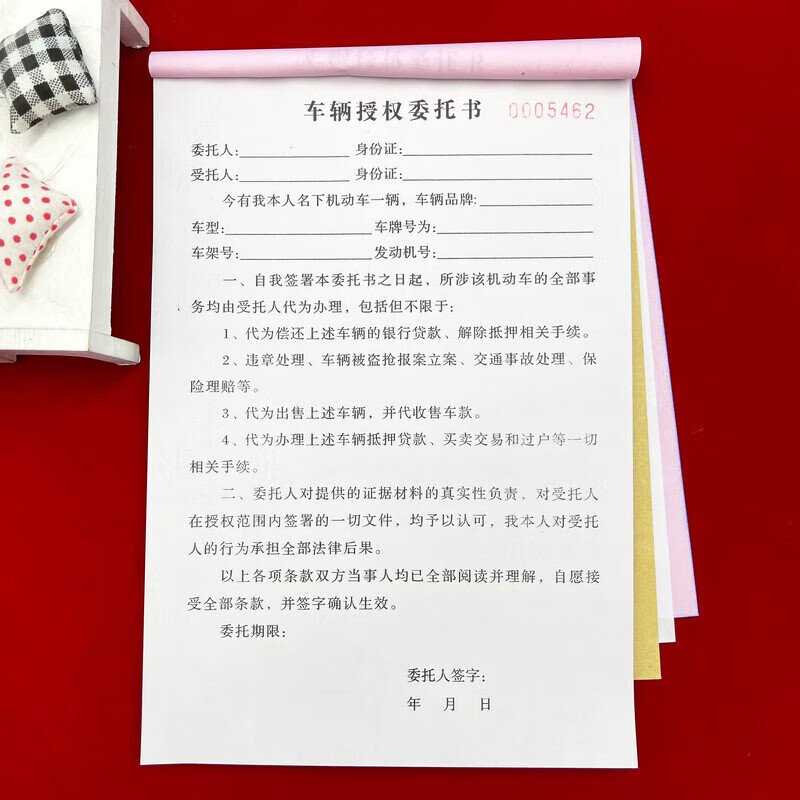 车辆授权委托书 0005462
委托人: 身份证:
受托人: 身份证:
今有我本人名下机动车一辆，车辆品牌:
车型: 车牌号为:
车架号: 发动机号:
一、自我签署本委托书之日起，所涉该机动车的全部事
务均由受托人代为办理，包括但不限于:
1、代为偿还上述车辆的银行贷款、解除抵押相关手续。
2、违章处理、车辆被盗抢报案立案、交通事故处理、保
险理赔等。
3、代为出售上述车辆，并代收售车款。
4、代为办理上述车辆抵押贷款、买卖交易和过户等一切
相关手续。
二、委托人对提供的证据材料的真实性负责，对受托人
在授权范围内签署的一切文件，均予以认可，我本人对受托
人的行为承担全部法律后果。
以上各项条款双方当事人均已全部阅读并理解，自愿接
受全部条款，并签字确认生效。
委托期限:
委托人签字:
年 月 日